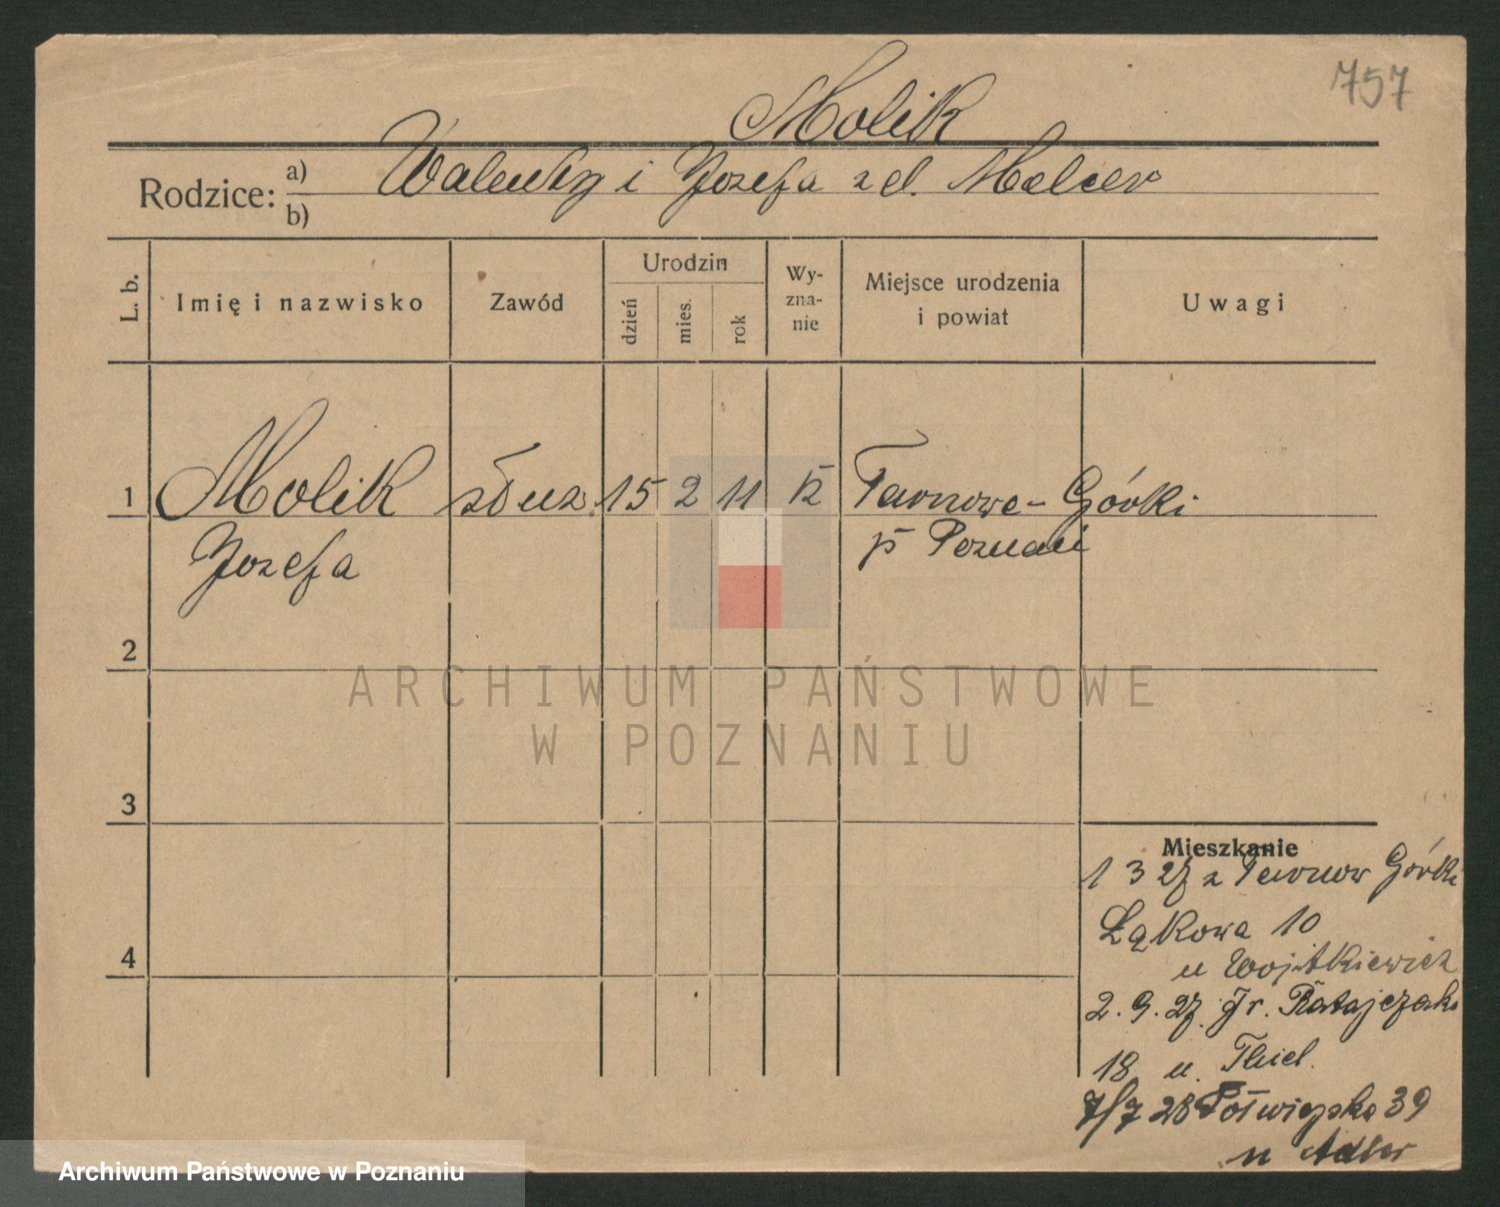 757
Molik
Rodzice: a) Walenty i Jozefa z d. Melcer
b)
L. b. Imię i nazwisko Zawód Urodzin dzień mies. rok Wy-zna-nie Miejsce urodzenia i powiat Uwagi
1 Molik służ. 15 2 11 k Tarnowo-Górki
Jozefa p Poznań
2
ARCHIWUM PAŃSTWOWE
W POZNANIU
3
Mieszkanie
1 3 27 z Tarnow Górki
Łąkowa 10
u Wojtkiewicz
4
2. 9. 27. Fr. Ratajczaka
18 u. Thiel.
7/7 28 Półwiejska 39
u Adler
Archiwum Państwowe w Poznaniu